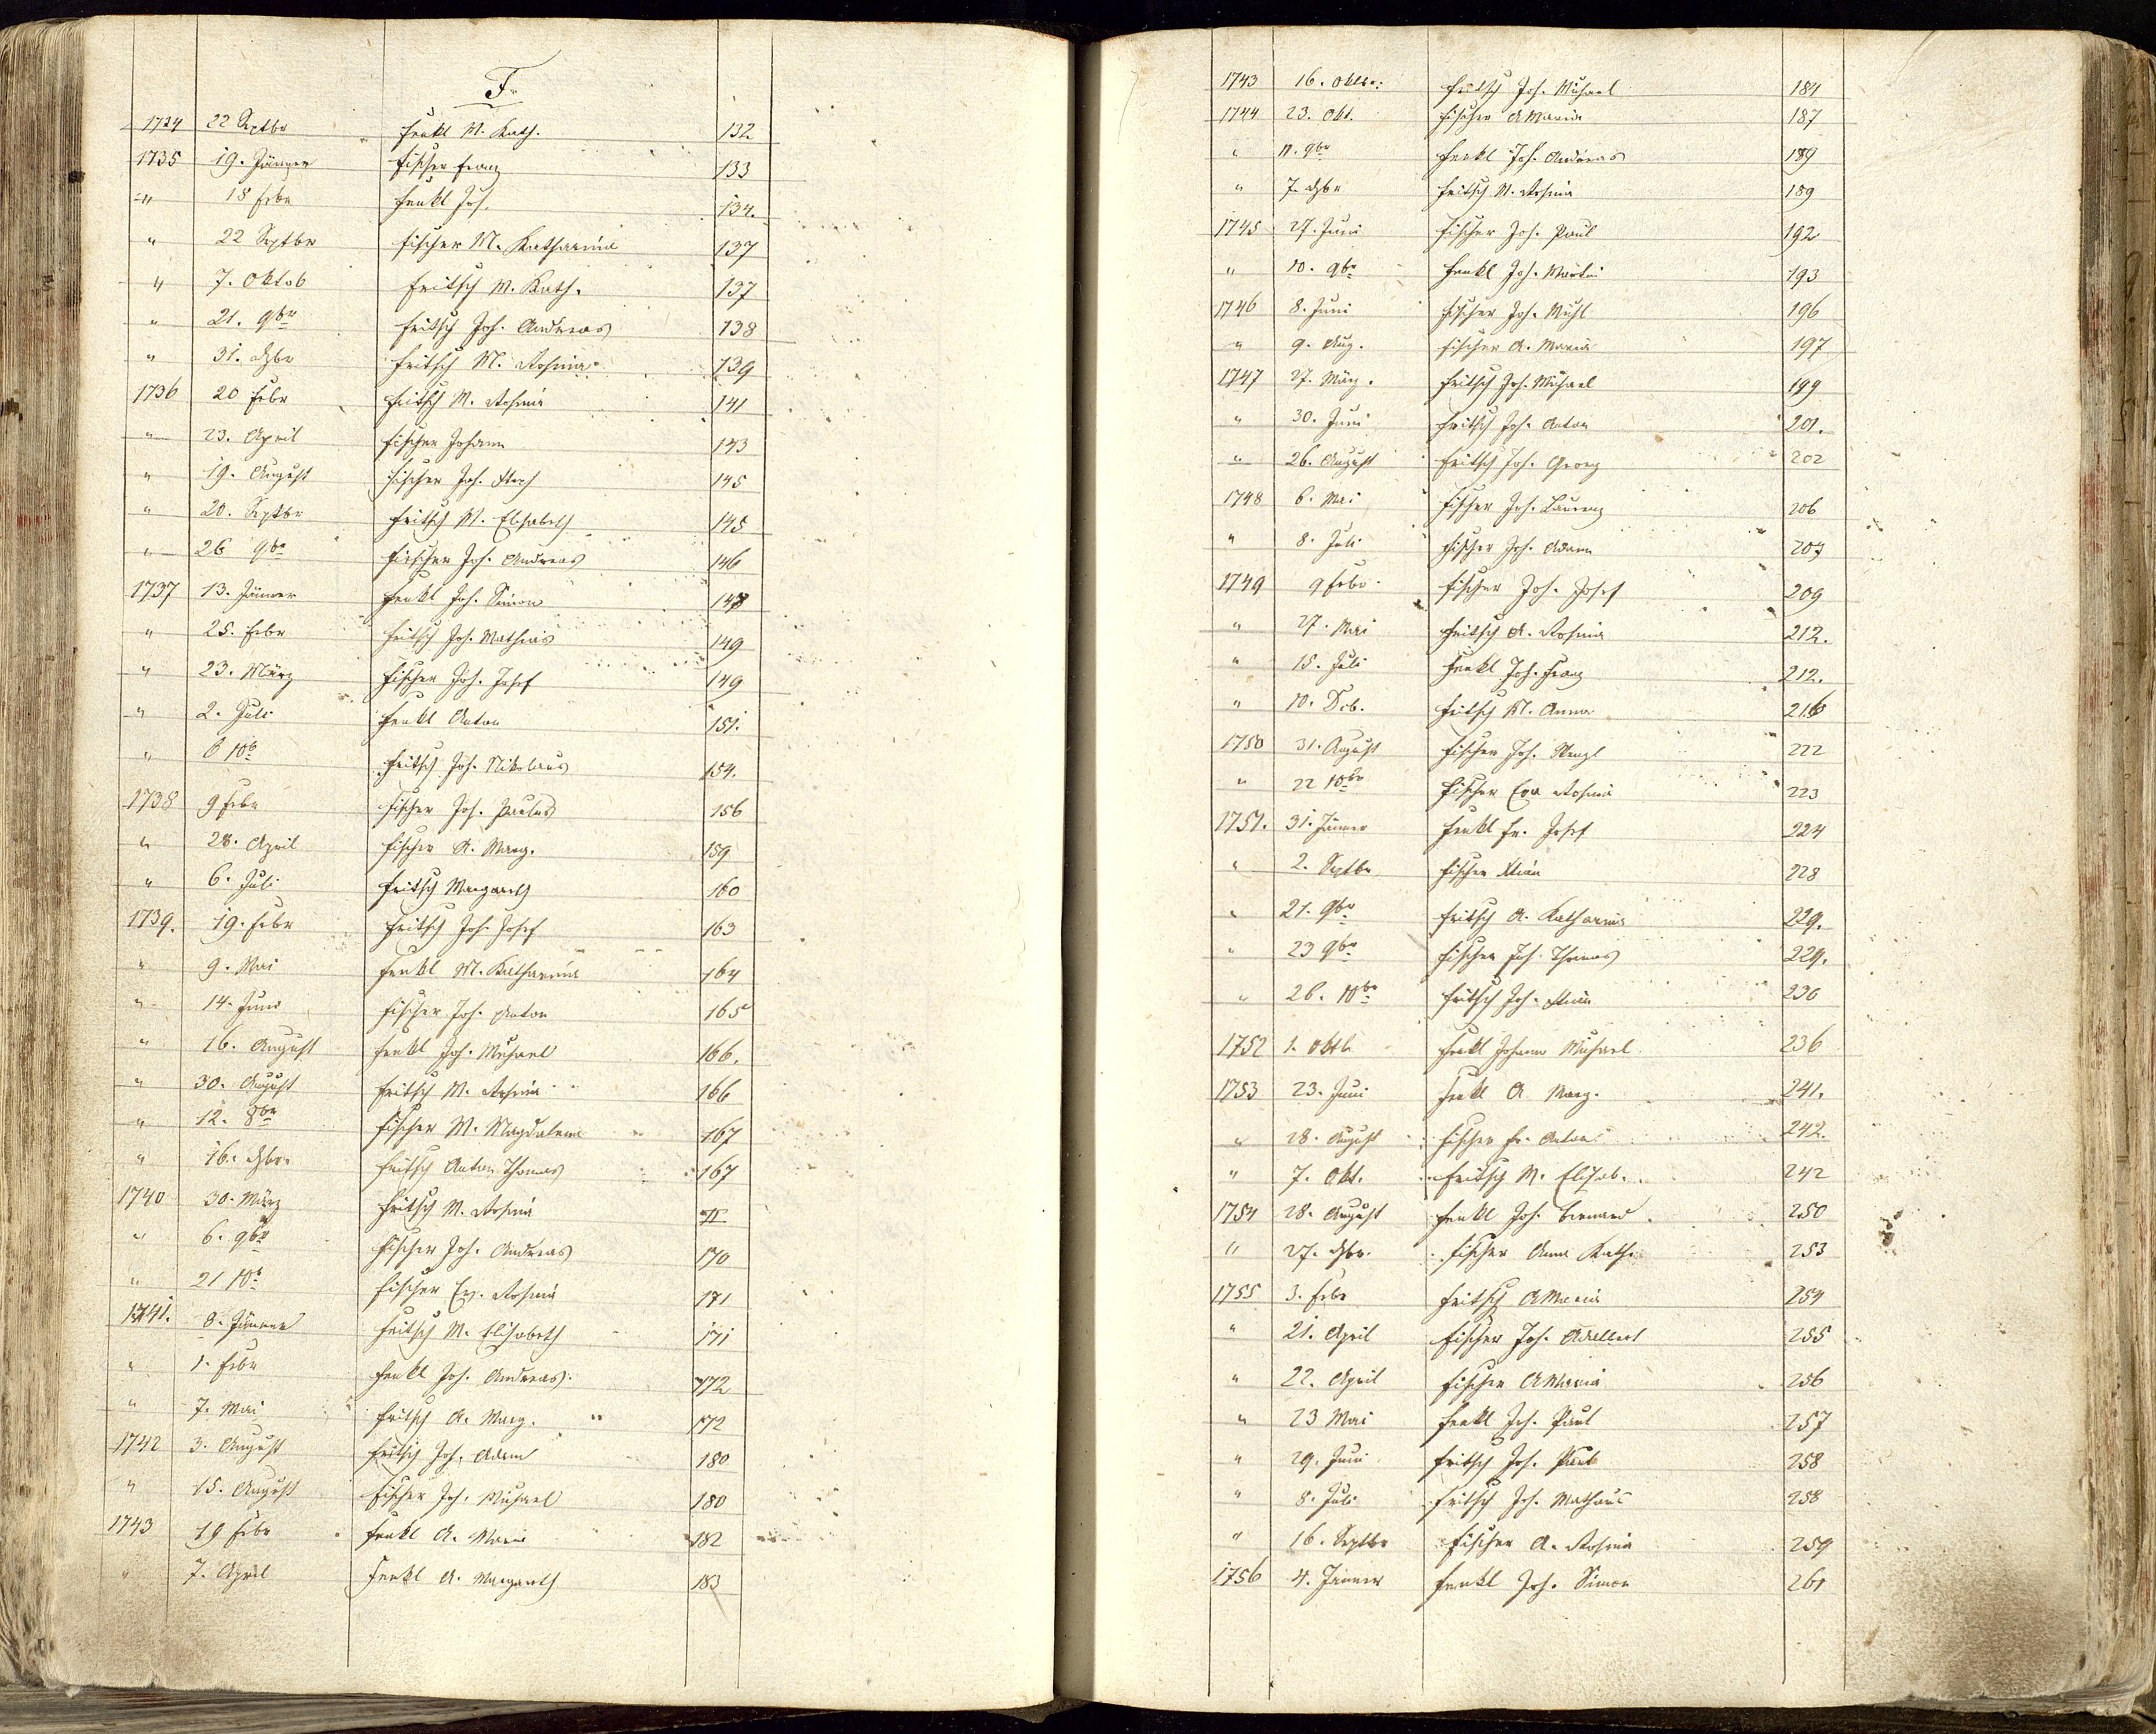 F.
1724 22 Septbr Fenkl M. Kath. 132
1735 19. Jänner Fischer Franz 133
" 18 Febr Fenkl Jos. 134.
" 22 Septbr Fischer M. Katharina 137
" 7. Oktob Fritsch M. Kath. 137
" 21. 9br Fritsch Joh. Andreas 138
" 31. Dzbr Fritsch M. Rosina 139
1736 20 Febr Fritsch M. Rosina 141
" 23. April Fischer Johann 143
" 19. August Fischer Joh. 145
" 20. Septbr Fritsch M. Elisabeth 145
" 26 9br Fischer Joh. Andreas 146
1737 13. Jänner Fenkl Joh. Simon 148
" 25. Febr Fritsch Joh. Mathias 149
" 23. März Fischer Joh. Josef 149
" 2. Juli Fenkl Anton 151.
" 6 10b Fritsch Joh. Nikolaus 154.
1738 9 Febr Fischer Joh. Paulus 156
" 28. April Fischer A. Marg. 159
" 6. Juli Fritsch Margareth 160
1739. 19. Febr Fritsch Joh. Josef 163
" 9. Mai Fenkl M. Katharina 164
" 14. Juni Fischer Joh. Anton 165
" 16. August Fenkl Joh. Michael 166.
" 30. August Fritsch M. Rosina 166
" 12. 8br Fischer M. Magdalena 167
" 16. Dzbr. Fritsch Anton Thomas 167
1740 30. März Fritsch M. Rosina II
" 6. 9br Fischer Joh. Andreas 170
" 21 10b Fischer Ev. Rosina 171
1741. 8. Jänner Fritsch M. Elisabeth 171
" 1. Febr Fenkl Joh. Andreas. 172
" 7. Mai Fritsch A. Marg. 172
1742 3. August Fritsch Joh. Adam 180
" 15. August Fischer Joh. Michael 180
1743 19 Febr Fenkl A. Maria 182
" 7. April Fenkl A. Margareth 183
1743 16. Oktbr: Fritsch Joh. Michael 184
1744 23. Okt. Fischer A Maria 187
" 11. 9br Fenkl Joh. Andreas 189
" 7. Dzbr Fritsch M. Rosina 189
1745 27. Juni Fischer Joh. Paul 192
" 10. 9br Fenkl Joh. Martin 193
1746 8. Juni Fischer Joh. Michl 196
" 9. Aug. Fischer A. Maria 197
1747 27. März. Fritsch Joh. Michael 199
" 30. Juni Fritsch Joh. Anton 201.
" 26. August Fritsch Joh. Georg 202
1748 6. Mai Fischer Joh. Laurenz 206
" 8. Juli Fischer Joh. Adam 207
1749 9 Febr. Fischer Joh. Josef 209
" 27. Mai Fritsch A. Rosina 212.
" 15. Juli Fenkl Joh. Franz 212.
" 10. Dcb. Fritsch M. Anna 216
1750 31. August Fischer Joh. Wenzl 222
" 22 10br Fischer Eva Rosina 223
1751. 31. Jänner Fenkl Fr. Josef 224
" 2. Septbr Fischer 228
" 21. 9br Fritsch A. Katharina 229.
" 23 9br Fischer Joh. Thomas 229.
" 26. 10br Fritsch Joh. 230
1752 1. Oktb Fenkl Johann Michael 236
1753 23. Juni Fenkl A Marg. 241.
" 28. August Fischer Fr. Anton 242.
" 7. Okt. Fritsch M. Elisab. 242
1754 28. August Fenkl Joh. Bernard 250
" 27. Dzbr. Fischer Anna Kath. 253
1755 3. Febr Fritsch A Maria 254
" 21. April Fischer Joh. Adalbert 255
" 22. April Fischer A Maria 256
" 23 Mai Fenkl Joh. Paul 257
" 29. Juni Fritsch Joh. Paul 258
" 8. Juli Fritsch Joh. Mathäus 258
" 16. Septbr Fischer A. Rosina 259
1756 4. Jänner Fenkl Joh. Simon 261